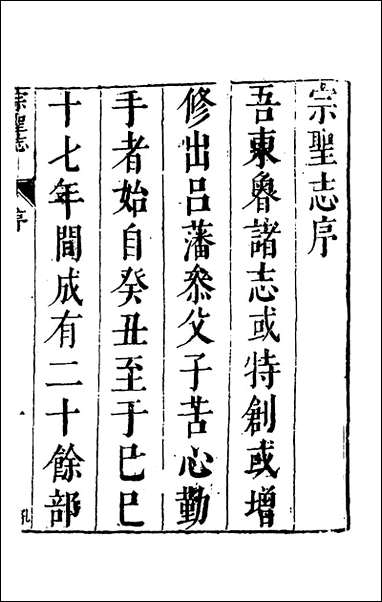 宗聖志序
吾東魯諸志或特創或增
修出呂藩叅父子苦心勤
手者始自癸丑至于巳巳
十七年間成有二十餘部
宗聖志
序
一
孔